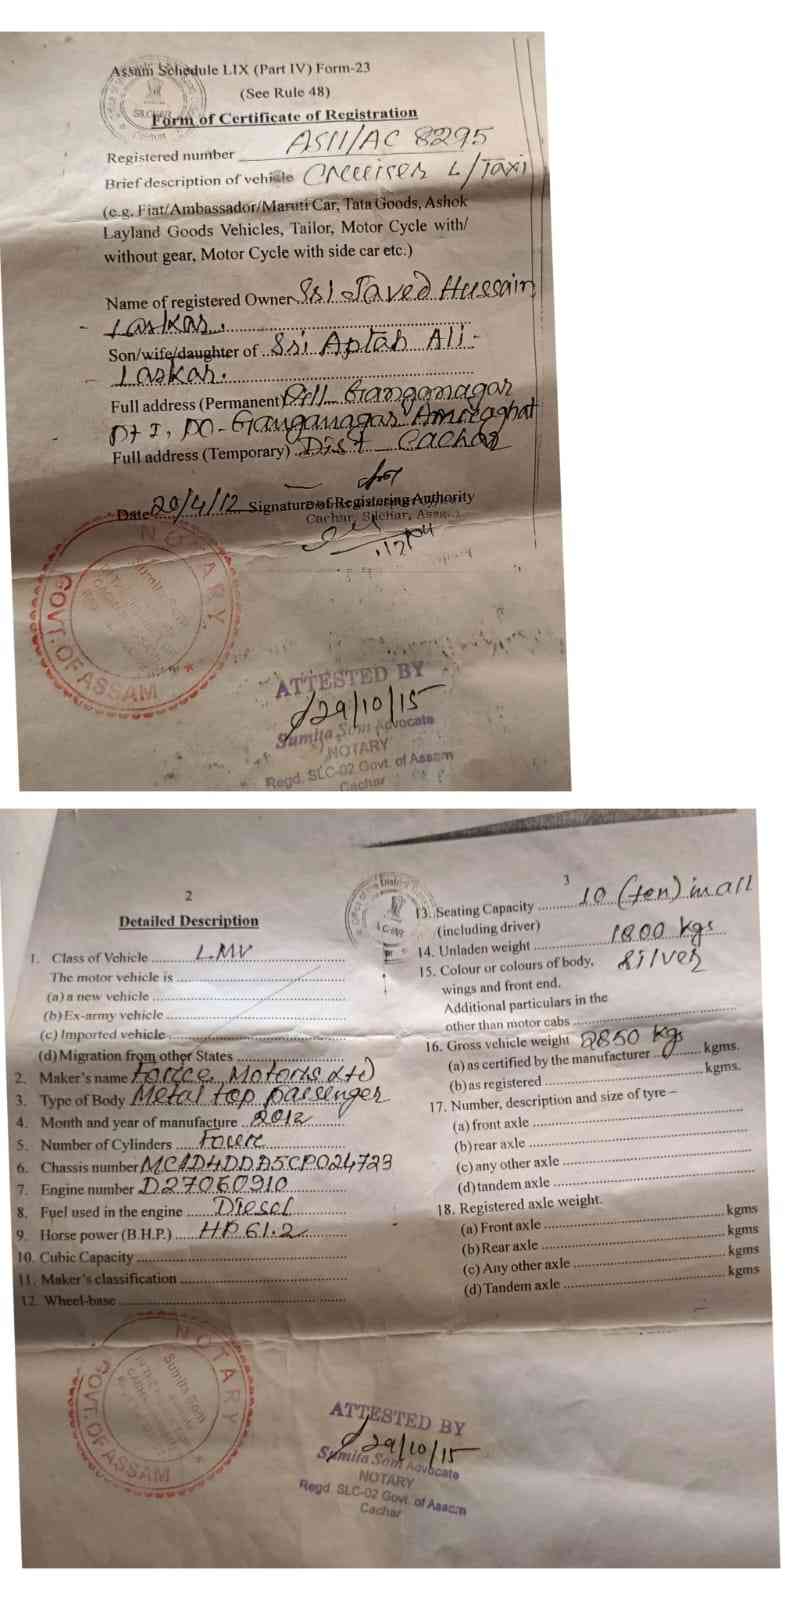 Assam Schedule LIX (Part IV) Form-23
(See Rule 48)
SILCHAR
Form of Certificate of Registration
Registered number AS11/AC 8295
Brief description of vehicle Cruiser L/Taxi
(e.g. Fiat/Ambassador/Maruti Car, Tata Goods, Ashok
Layland Goods Vehicles, Tailor, Motor Cycle with/
without gear, Motor Cycle with side car etc.)
Name of registered Owner Sri Javed Hussain
Laskar.
Son/wife/daughter of Sri Aptab Ali
Laskar.
Full address (Permanent) Vill Ganganagar
Pt I, PO- Ganganagar Amraghat
Full address (Temporary) Dist Cachar
Date 20/4/12 Signature of Registering Authority
Cachar, Silchar, Assam
NOTARY
GOVT. OF ASSAM
ATTESTED BY
29/10/15
Sumita Som Advocate
NOTARY
Regd. SLC-02 Govt. of Assam
Cachar
2
Detailed Description
1. Class of Vehicle LMV
The motor vehicle is
(a) a new vehicle
(b) Ex-army vehicle
(c) Imported vehicle
(d) Migration from other States
2. Maker's name Force Motors Ltd
3. Type of Body Metal top passenger
4. Month and year of manufacture 2012
5. Number of Cylinders
6. Chassis number MC1D4DDA5CP024723
7. Engine number D27060910
8. Fuel used in the engine Diesel
9. Horse power (B.H.P.) HP 61.2
10. Cubic Capacity
11. Maker's classification
12. Wheel-base
3
13. Seating Capacity 10 (ten) in all
(including driver)
14. Unladen weight 1800 kgs
15. Colour or colours of body, Silver
wings and front end.
Additional particulars in the
other than motor cabs
16. Gross vehicle weight 2850 kgs
(a) as certified by the manufacturer kgms.
(b) as registered kgms.
17. Number, description and size of tyre –
(a) front axle
(b) rear axle
(c) any other axle
(d) tandem axle
18. Registered axle weight.
(a) Front axle kgms
(b) Rear axle kgms
(c) Any other axle kgms
(d) Tandem axle kgms
NOTARY
Sumita Som
GOVT. OF ASSAM
ATTESTED BY
29/10/15
Sumita Som Advocate
NOTARY
Regd. SLC-02 Govt. of Assam
Cachar